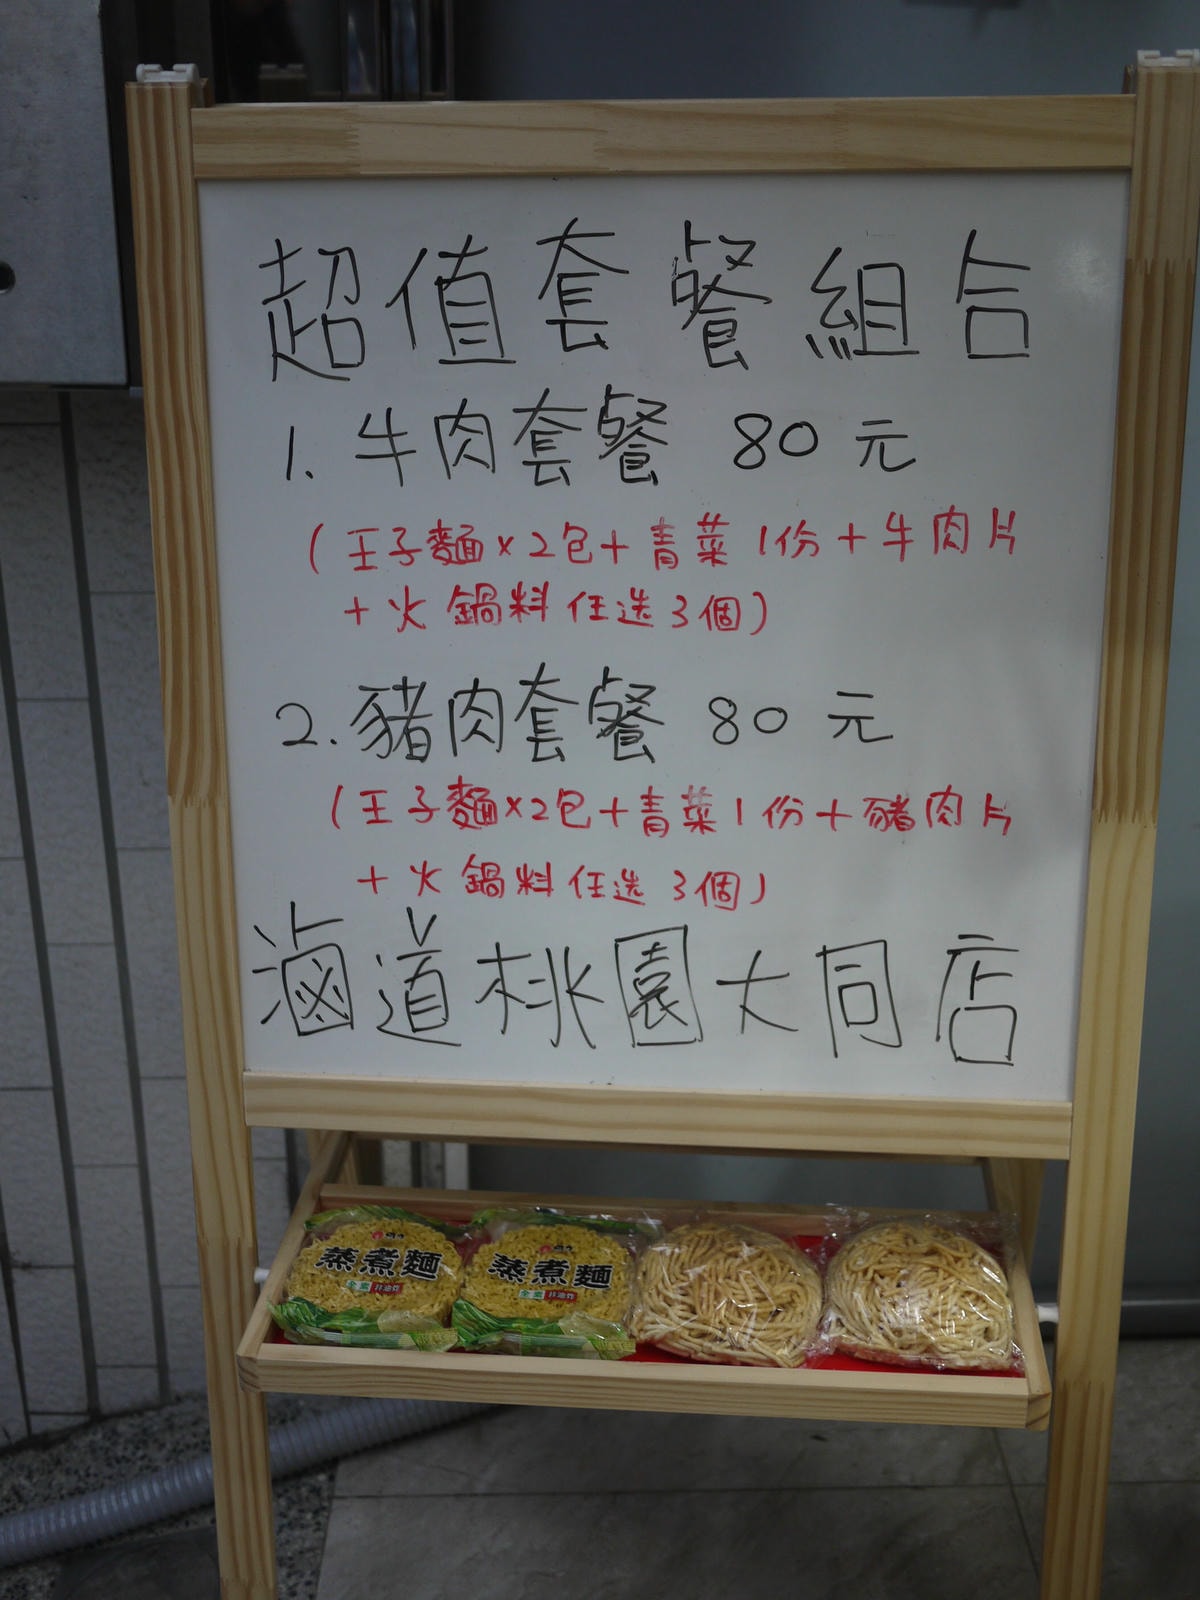 超值套餐組合
1. 牛肉套餐 80元
(王子麵×2包+青菜1份+牛肉片
+火鍋料任选3個)
2. 豬肉套餐 80元
(王子麵×2包+青菜1份+豬肉片
+火鍋料任选3個)
滷道桃園大同店
蒸煮麵
全素 非油炸
蒸煮麵
全素 非油炸